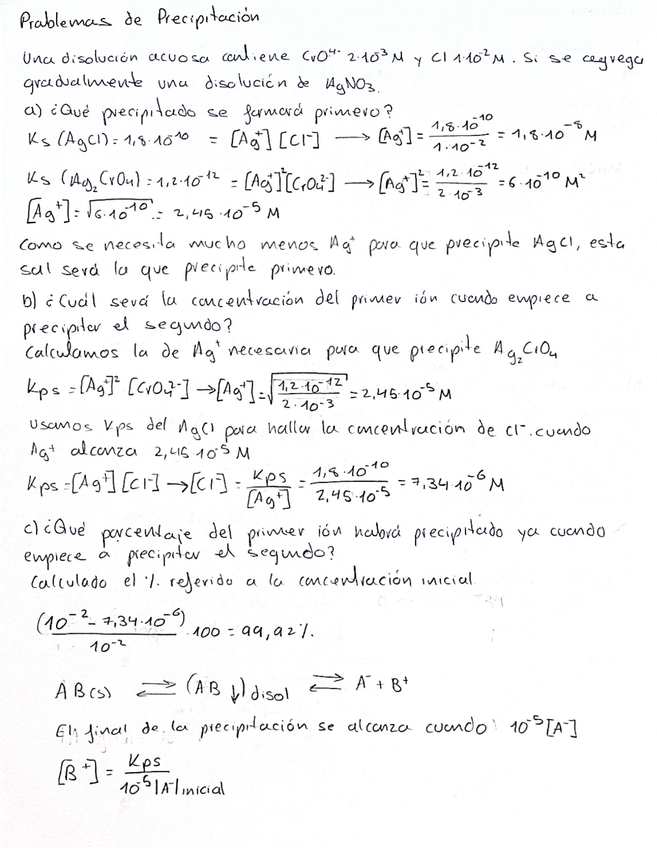 Problemas de Precipitación
Una disolución acuosa contiene CrO⁴⁻ 2·10⁻³ M y Cl 1·10⁻² M. Si se agrega
gradualmente una disolución de AgNO₃.
a) ¿Qué precipitado se formará primero?
Ks (AgCl) = 1,8·10⁻¹⁰ = [Ag⁺] [Cl⁻] → [Ag⁺] = 1,8·10⁻¹⁰ / 1·10⁻² = 1,8·10⁻⁸ M
Ks (Ag₂CrO₄) = 1,2·10⁻¹² = [Ag⁺]² [CrO₄²⁻] → [Ag⁺]² = 1,2·10⁻¹² / 2·10⁻³ = 6·10⁻¹⁰ M²
[Ag⁺] = √6·10⁻¹⁰ = 2,45·10⁻⁵ M
Como se necesita mucho menos Ag⁺ para que precipite AgCl, esta
sal será la que precipite primero.
b) ¿Cuál será la concentración del primer ión cuando empiece a
precipitar el segundo?
Calculamos la de Ag⁺ necesaria para que precipite Ag₂CrO₄
Kps = [Ag⁺]² [CrO₄²⁻] → [Ag⁺] = √1,2·10⁻¹² / 2·10⁻³ = 2,45·10⁻⁵ M
Usamos Kps del AgCl para hallar la concentración de Cl⁻ cuando
Ag⁺ alcanza 2,45 10⁻⁵ M
Kps = [Ag⁺] [Cl⁻] → [Cl⁻] = Kps / [Ag⁺] = 1,8·10⁻¹⁰ / 2,45·10⁻⁵ = 7,34 10⁻⁶ M
c) ¿Qué porcentaje del primer ión habrá precipitado ya cuando
empiece a precipitar el segundo?
Calculado el % referido a la concentración inicial
(10⁻² − 7,34·10⁻⁶) / 10⁻² · 100 = 99,92%.
AB(s) ⇌ (AB ↓) disol ⇌ A⁻ + B⁺
El final de la precipitación se alcanza cuando 10⁻⁵ [A⁻]
[B⁺] = Kps / 10⁻⁵ |A⁻| inicial